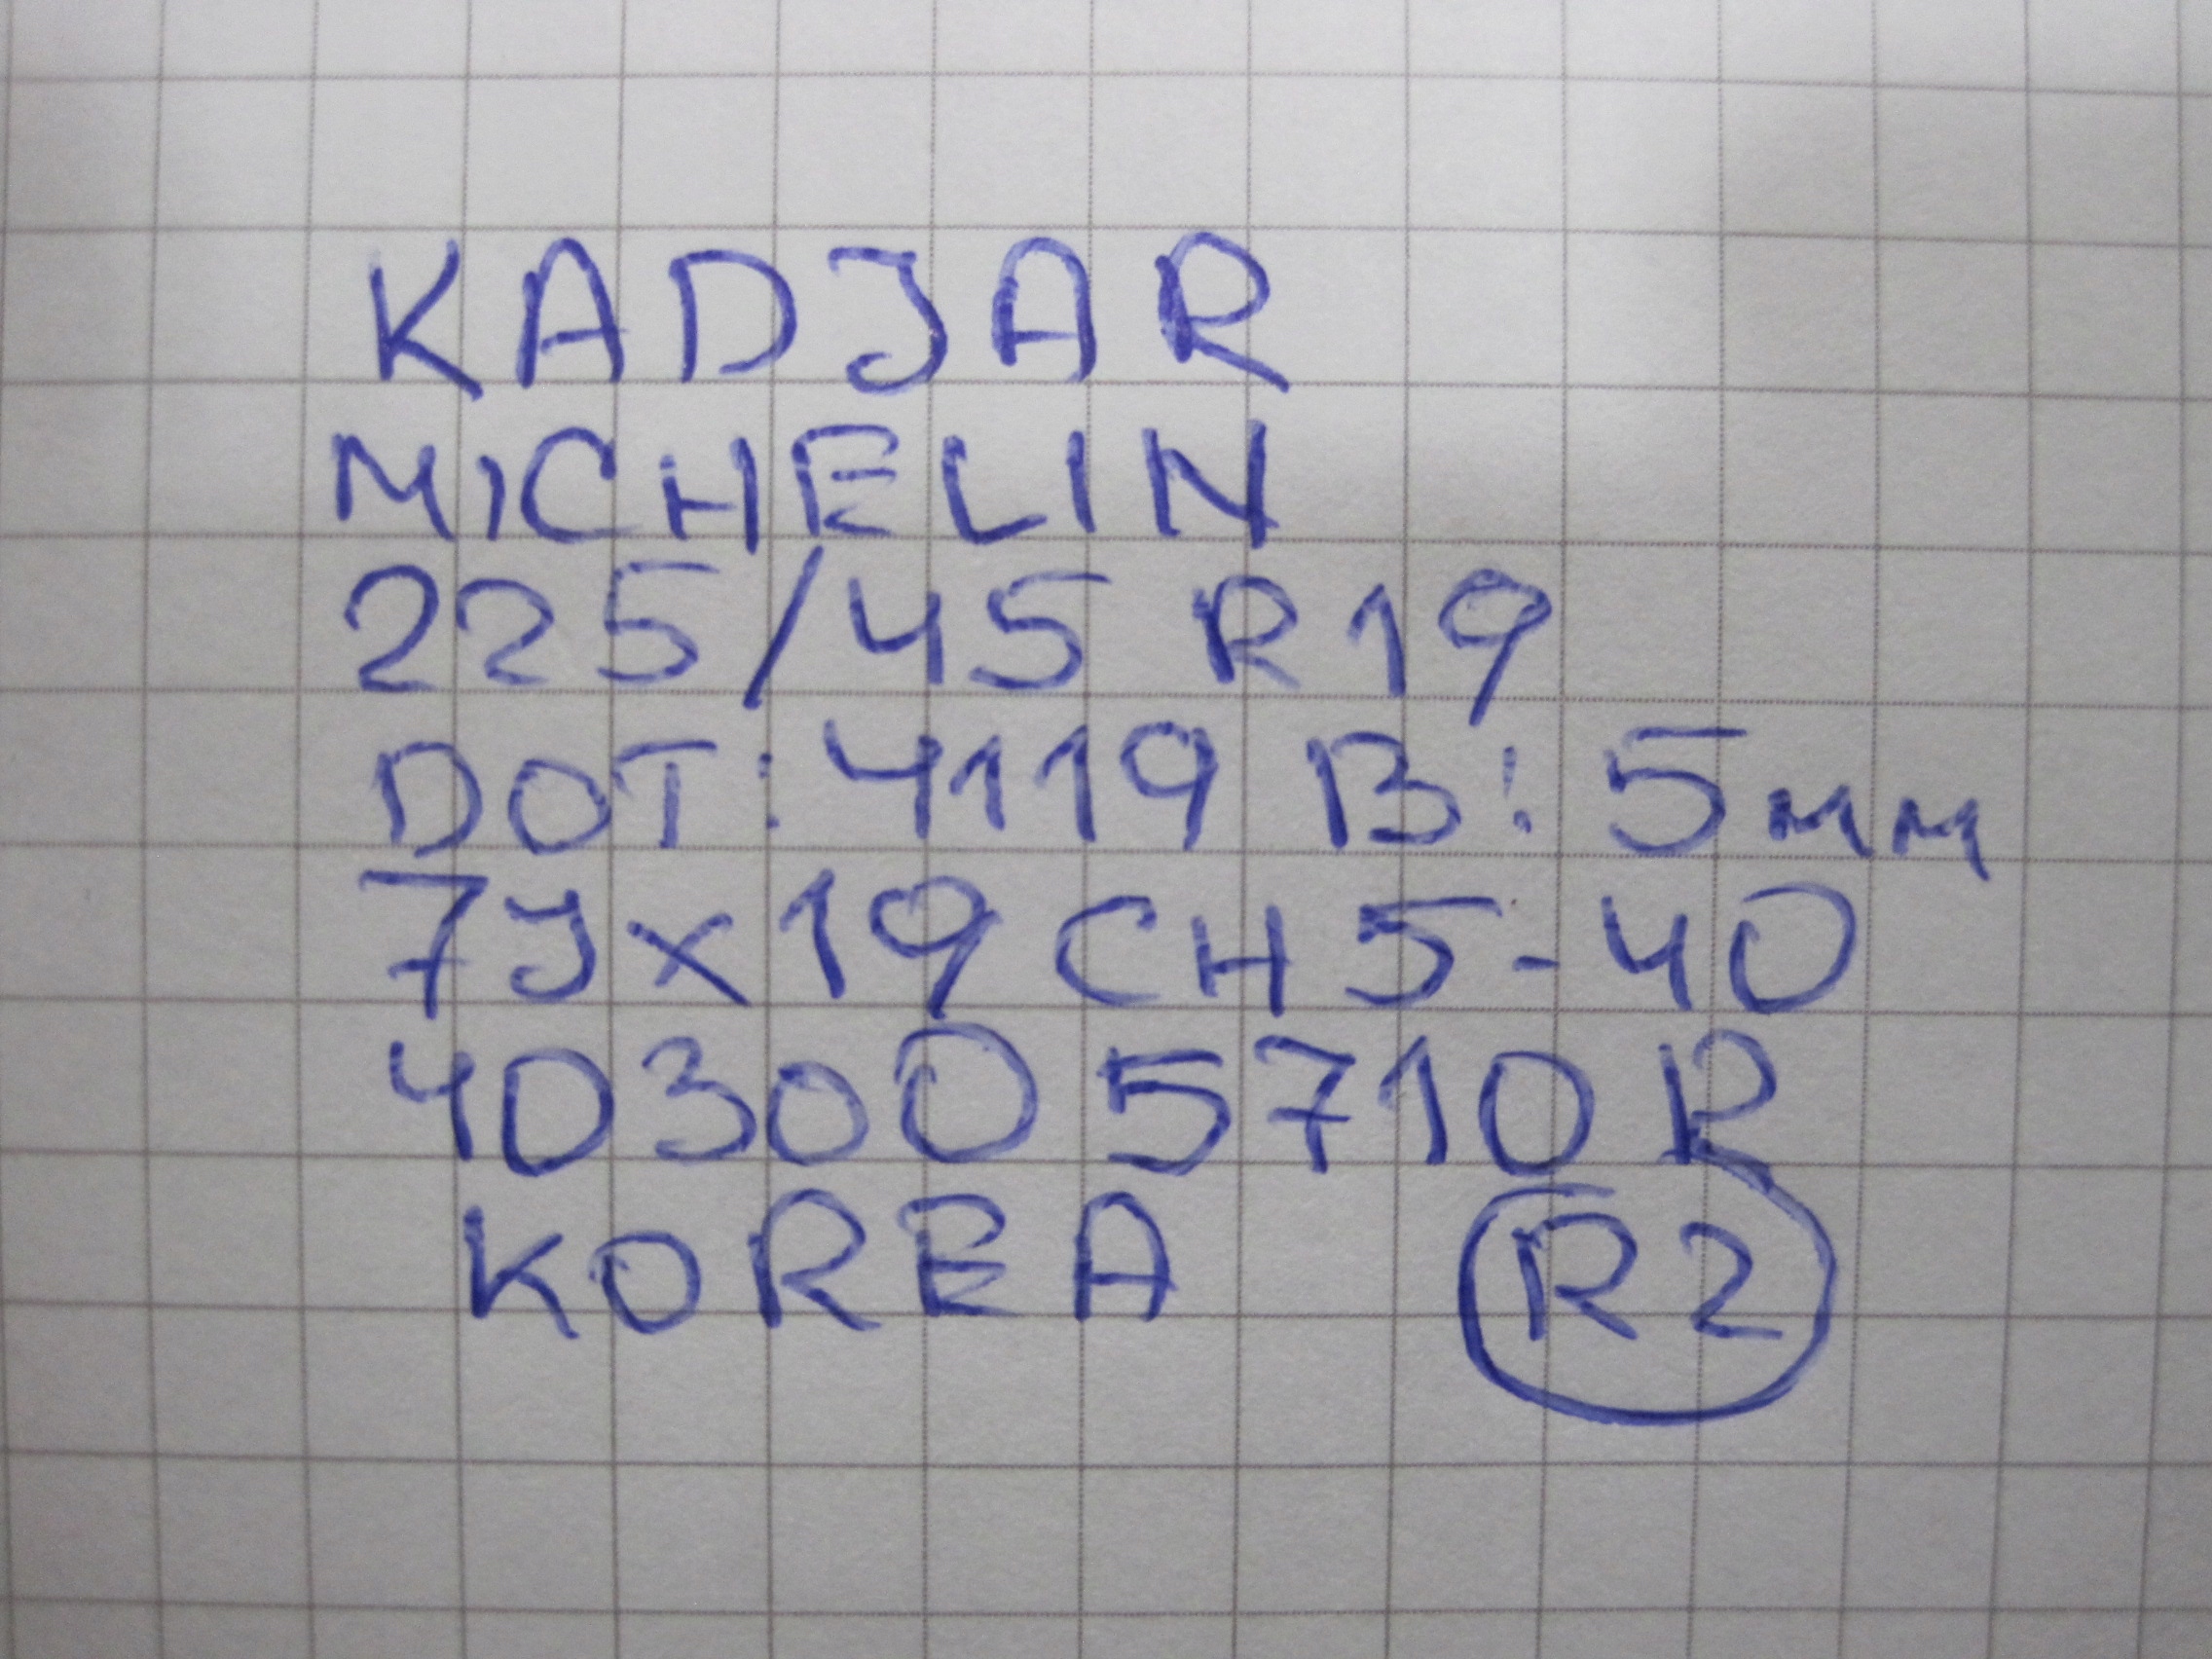 KADJAR
MICHELIN
225/45 R19
DOT: 4119 B: 5мм
7Jx19 CH 5-40
403005710R
KOREA R2